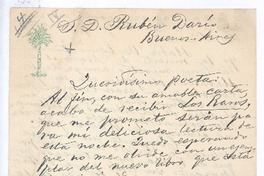 S. D. Rubén Darío
Buenos Aires
Queridísimo poeta
Al fin, con su amable carta,
acabo de recibir Los Raros,
que me prometo serán pa
ra mí deliciosa lectura de
esta noche. Quedo esperando
que no me olvide con un ejem
plar del nuevo libro, que está